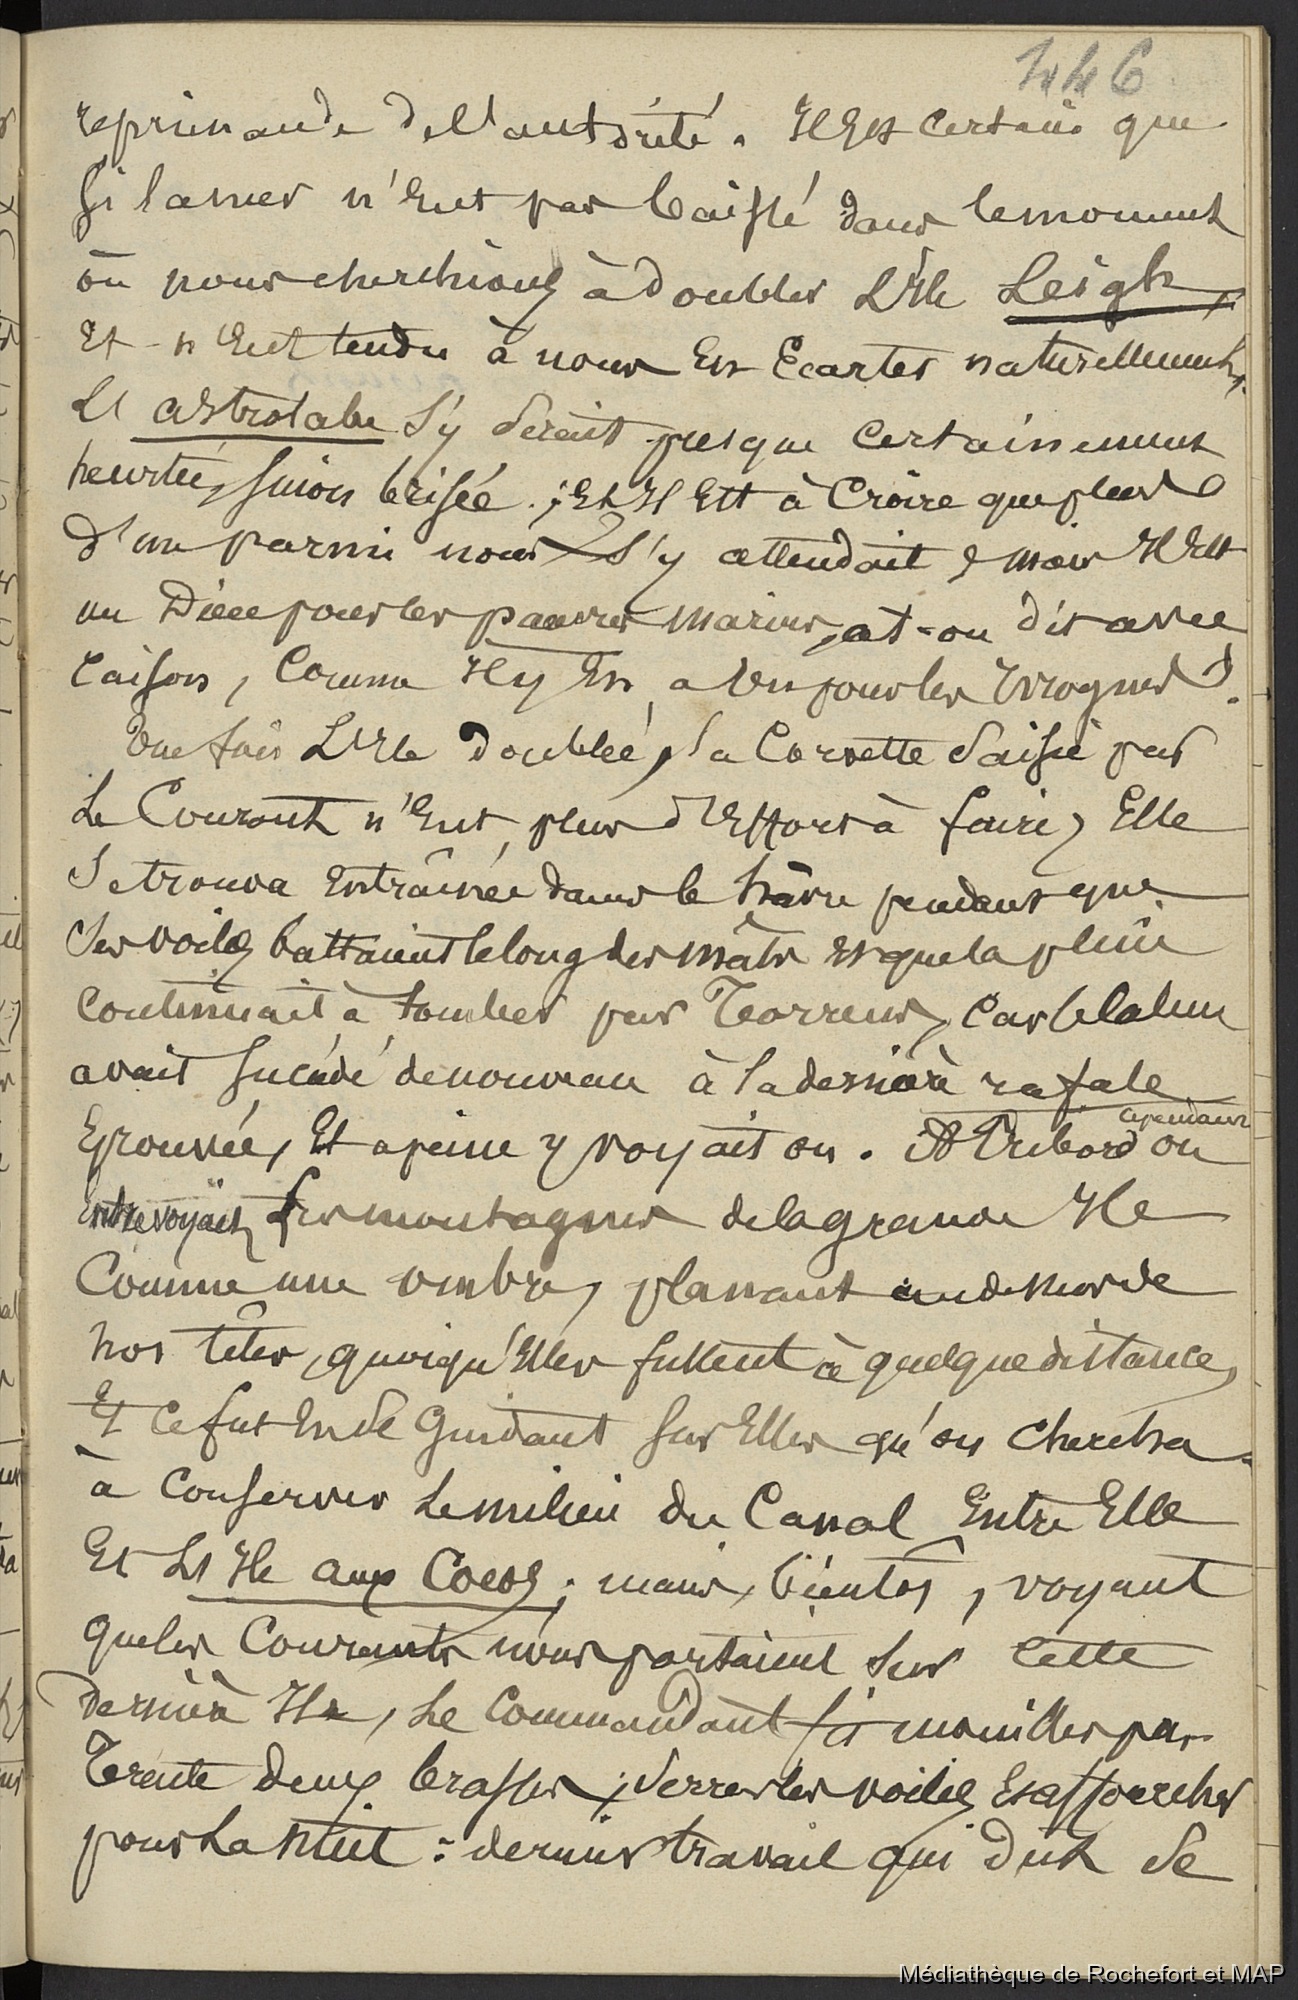 446
reprimande de l'autorité. Il Est certain que
si la mer n'Eut pas baissé dans le moment
où nous cherchions à doubler L'Ile Leigh,
Et n'Eut tendu à nous En Ecarter naturellement,
L'astrolabe s'y serait presque certainement
heurtée, sinon brisée ; Et Il Est à Croire que plus
d'un parmi nous s'y attendait ; mais Il Est
un Dieu pour les pauvres marins, at-on dit avec
raison, Comme Il y En a un pour les Ivrognes.
Une fois L'Ile doublée, la Corvette saisie par
Le Courant n'Eut plus d'Effort à faire, Elle
se trouva Entraînée dans le hâvre pendant que
ses voiles battaient le long des mâts Et que la pluie
Continuait à tomber par Torrens, Car le Calme
avait succédé de nouveau à la dernière rafale
Eprouvée, Et a peine y voyait on. A Tribord on
cependant
entrevoyait les montagnes de la grande Ile
Comme une ombre, planant au dessus de
nos têtes, quoiqu'Elles fussent à quelque distance,
Et ce fut En se Guidant sur Elles qu'on chercha
à Conserver Le milieu du Canal Entre Elle
Et L'Ile aux Cocos ; mais, bientôt, voyant
que les Courants nous portaient sur cette
dernière Ile, Le Commandant fit mouiller par
Trente deux brasses ; serrer les voiles Et affourcher
pour La nuit : dernier travail qui dut se
Médiathèque de Rochefort et MAP